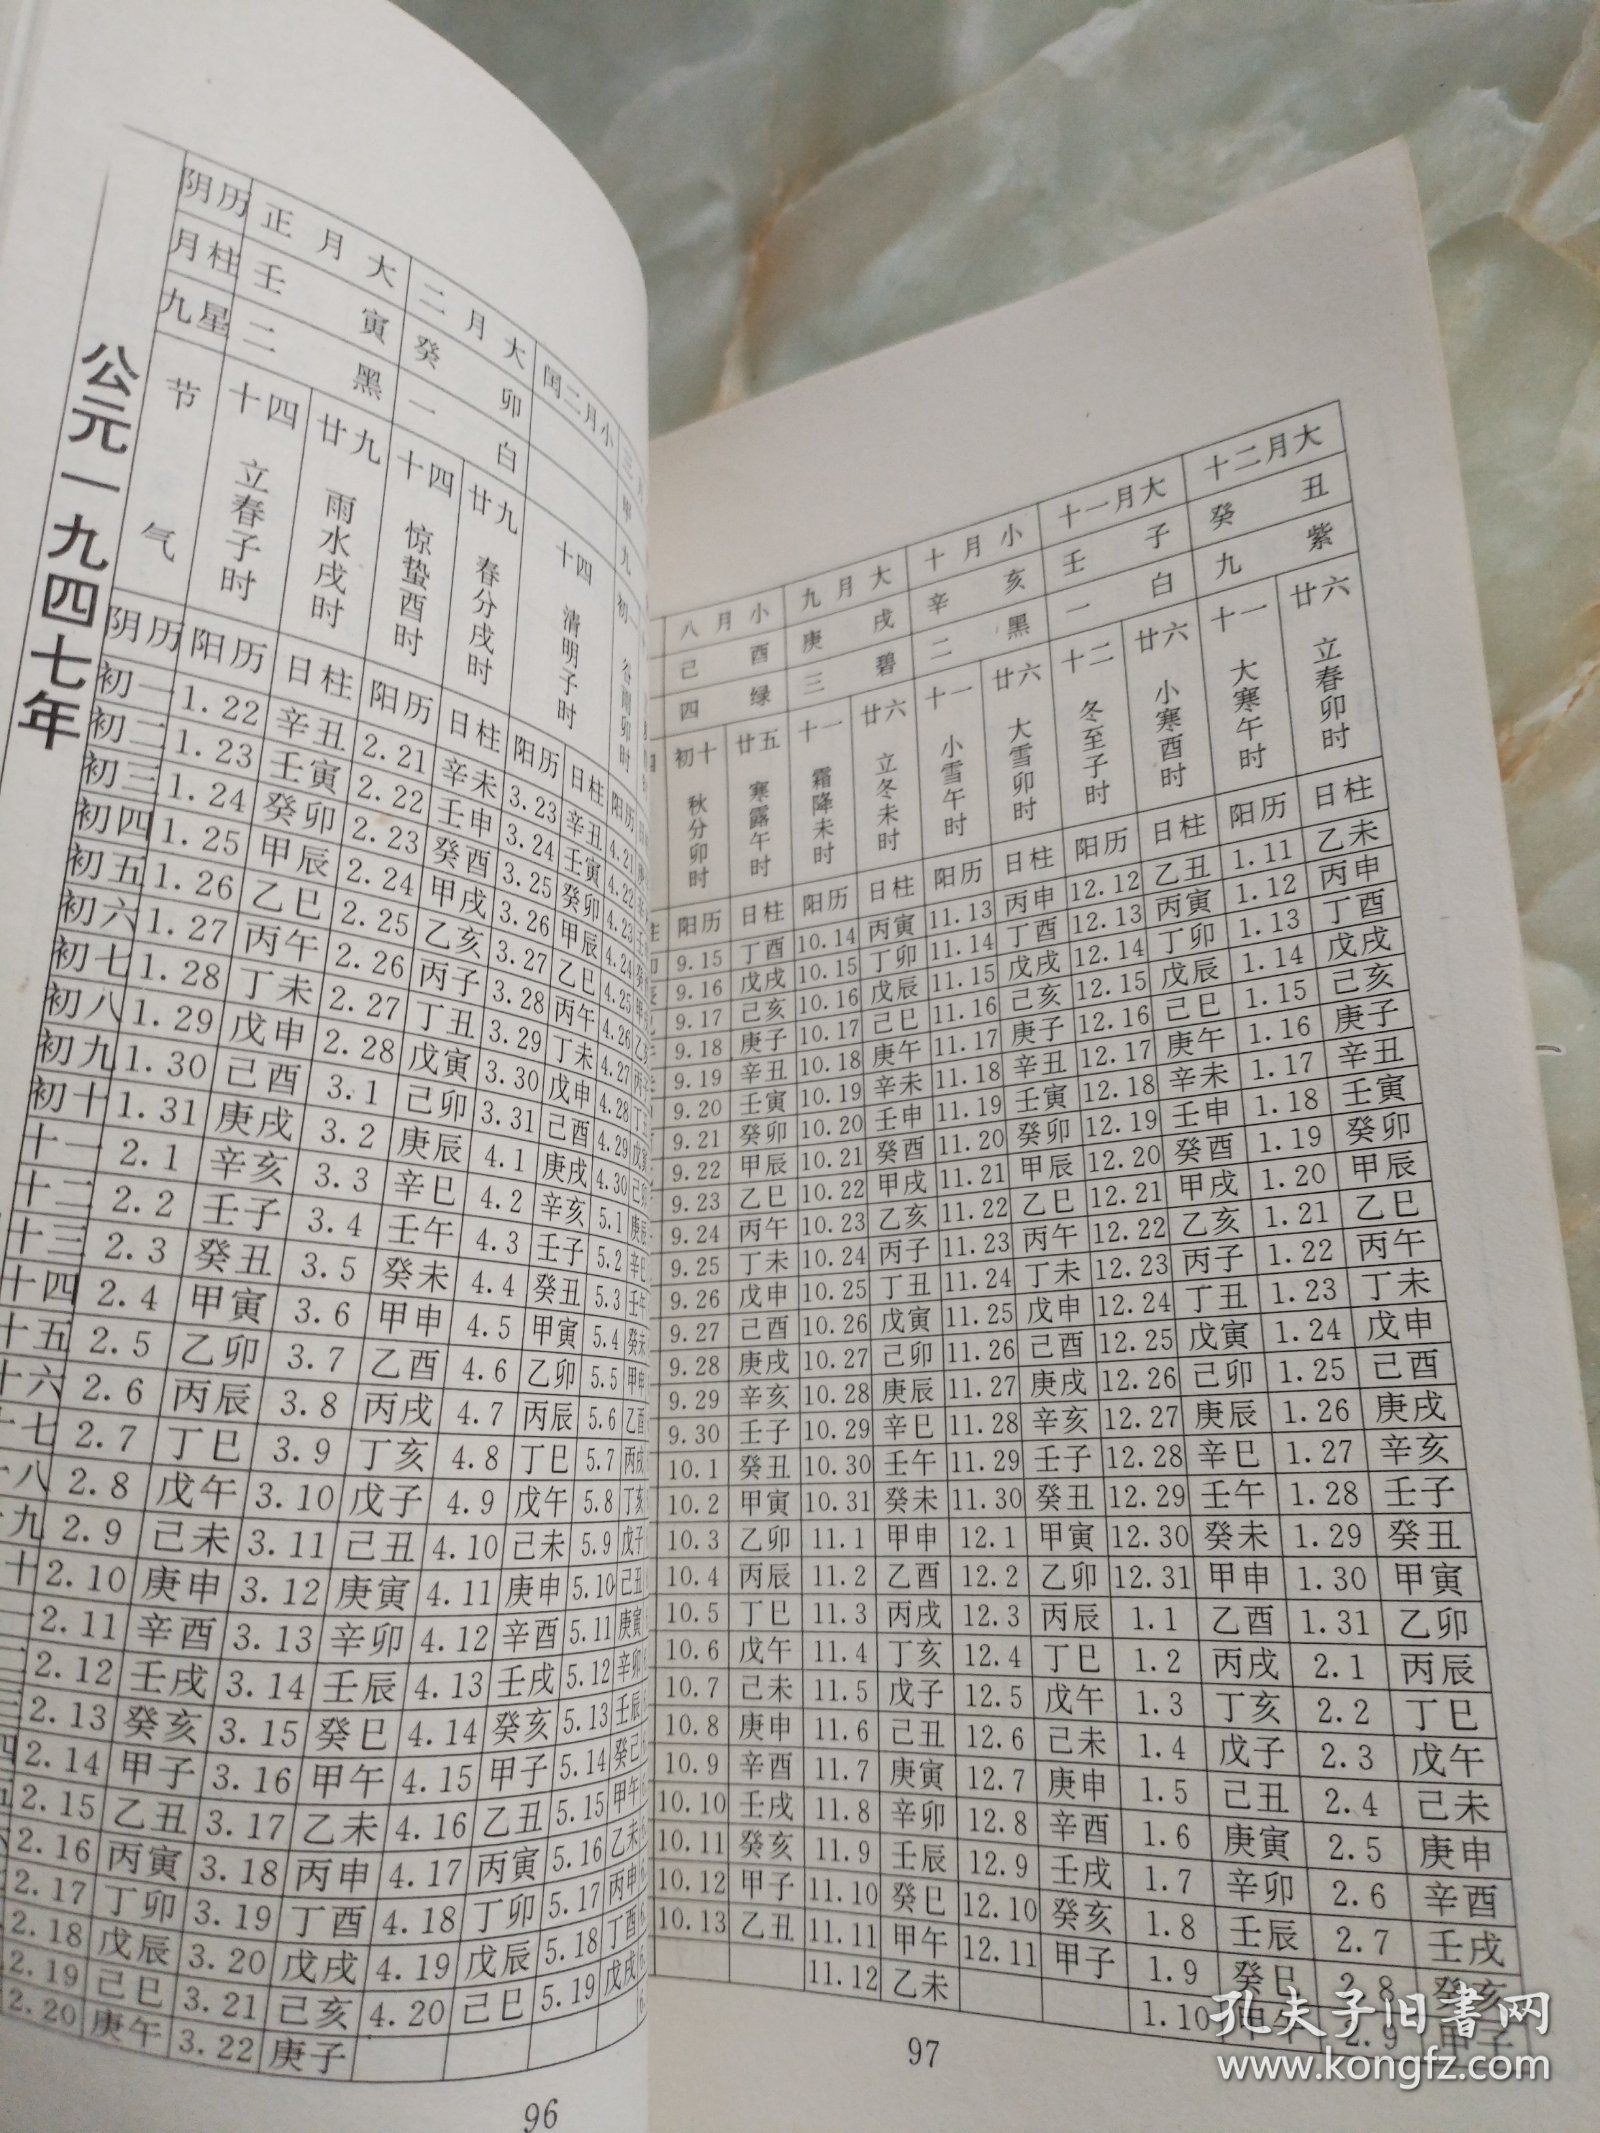 公元一九四七年
阴历 正月大 二月大 闰二月小
月柱 壬寅 癸卯
九星 二黑 一白
节气 十四 立春子时 廿九 雨水戌时 十四 惊蛰酉时 廿九 春分戌时 十四 清明子时 初一 谷雨卯时
阴历 阳历 日柱 阳历 日柱 阳历 日柱 阳历
初一 1.22 辛丑 2.21 辛未 3.23 辛丑 4.21
初二 1.23 壬寅 2.22 壬申 3.24 壬寅 4.22
初三 1.24 癸卯 2.23 癸酉 3.25 癸卯 4.23
初四 1.25 甲辰 2.24 甲戌 3.26 甲辰 4.24
初五 1.26 乙巳 2.25 乙亥 3.27 乙巳 4.25
初六 1.27 丙午 2.26 丙子 3.28 丙午 4.26
初七 1.28 丁未 2.27 丁丑 3.29 丁未 4.27
初八 1.29 戊申 2.28 戊寅 3.30 戊申 4.28
初九 1.30 己酉 3.1 己卯 3.31 己酉 4.29
初十 1.31 庚戌 3.2 庚辰 4.1 庚戌 4.30
十一 2.1 辛亥 3.3 辛巳 4.2 辛亥 5.1 庚辰
十二 2.2 壬子 3.4 壬午 4.3 壬子 5.2 辛巳
十三 2.3 癸丑 3.5 癸未 4.4 癸丑 5.3 壬午
十四 2.4 甲寅 3.6 甲申 4.5 甲寅 5.4 癸未
十五 2.5 乙卯 3.7 乙酉 4.6 乙卯 5.5 甲申
十六 2.6 丙辰 3.8 丙戌 4.7 丙辰 5.6 乙酉
十七 2.7 丁巳 3.9 丁亥 4.8 丁巳 5.7 丙戌
八 2.8 戊午 3.10 戊子 4.9 戊午 5.8 丁亥
九 2.9 己未 3.11 己丑 4.10 己未 5.9 戊子
十 2.10 庚申 3.12 庚寅 4.11 庚申 5.10 己丑
2.11 辛酉 3.13 辛卯 4.12 辛酉 5.11 庚寅
2.12 壬戌 3.14 壬辰 4.13 壬戌 5.12 辛卯
2.13 癸亥 3.15 癸巳 4.14 癸亥 5.13 壬辰
2.14 甲子 3.16 甲午 4.15 甲子 5.14 癸巳
2.15 乙丑 3.17 乙未 4.16 乙丑 5.15 甲午
2.16 丙寅 3.18 丙申 4.17 丙寅 5.16 乙未
2.17 丁卯 3.19 丁酉 4.18 丁卯 5.17 丙申
2.18 戊辰 3.20 戊戌 4.19 戊辰 5.18 丁酉
2.19 己巳 3.21 己亥 4.20 己巳 5.19 戊戌
2.20 庚午 3.22 庚子
96
八月小 九月大 十月小 十一月大 十二月大
己酉 庚戌 辛亥 壬子 癸丑
四绿 三碧 二黑 一白 九紫
初十 秋分卯时 廿五 寒露午时 十一 霜降未时 廿六 立冬未时 十一 小雪午时 廿六 大雪卯时 十二 冬至子时 廿六 小寒酉时 十一 大寒午时 廿六 立春卯时
阳历 日柱 阳历 日柱 阳历 日柱 阳历 日柱 阳历 日柱
9.15 丁酉 10.14 丙寅 11.13 丙申 12.12 乙丑 1.11 乙未
9.16 戊戌 10.15 丁卯 11.14 丁酉 12.13 丙寅 1.12 丙申
9.17 己亥 10.16 戊辰 11.15 戊戌 12.14 丁卯 1.13 丁酉
9.18 庚子 10.17 己巳 11.16 己亥 12.15 戊辰 1.14 戊戌
9.19 辛丑 10.18 庚午 11.17 庚子 12.16 己巳 1.15 己亥
9.20 壬寅 10.19 辛未 11.18 辛丑 12.17 庚午 1.16 庚子
9.21 癸卯 10.20 壬申 11.19 壬寅 12.18 辛未 1.17 辛丑
9.22 甲辰 10.21 癸酉 11.20 癸卯 12.19 壬申 1.18 壬寅
9.23 乙巳 10.22 甲戌 11.21 甲辰 12.20 癸酉 1.19 癸卯
9.24 丙午 10.23 乙亥 11.22 乙巳 12.21 甲戌 1.20 甲辰
9.25 丁未 10.24 丙子 11.23 丙午 12.22 乙亥 1.21 乙巳
9.26 戊申 10.25 丁丑 11.24 丁未 12.23 丙子 1.22 丙午
9.27 己酉 10.26 戊寅 11.25 戊申 12.24 丁丑 1.23 丁未
9.28 庚戌 10.27 己卯 11.26 己酉 12.25 戊寅 1.24 戊申
9.29 辛亥 10.28 庚辰 11.27 庚戌 12.26 己卯 1.25 己酉
9.30 壬子 10.29 辛巳 11.28 辛亥 12.27 庚辰 1.26 庚戌
10.1 癸丑 10.30 壬午 11.29 壬子 12.28 辛巳 1.27 辛亥
10.2 甲寅 10.31 癸未 11.30 癸丑 12.29 壬午 1.28 壬子
10.3 乙卯 11.1 甲申 12.1 甲寅 12.30 癸未 1.29 癸丑
10.4 丙辰 11.2 乙酉 12.2 乙卯 12.31 甲申 1.30 甲寅
10.5 丁巳 11.3 丙戌 12.3 丙辰 1.1 乙酉 1.31 乙卯
10.6 戊午 11.4 丁亥 12.4 丁巳 1.2 丙戌 2.1 丙辰
10.7 己未 11.5 戊子 12.5 戊午 1.3 丁亥 2.2 丁巳
10.8 庚申 11.6 己丑 12.6 己未 1.4 戊子 2.3 戊午
10.9 辛酉 11.7 庚寅 12.7 庚申 1.5 己丑 2.4 己未
10.10 壬戌 11.8 辛卯 12.8 辛酉 1.6 庚寅 2.5 庚申
10.11 癸亥 11.9 壬辰 12.9 壬戌 1.7 辛卯 2.6 辛酉
10.12 甲子 11.10 癸巳 12.10 癸亥 1.8 壬辰 2.7 壬戌
10.13 乙丑 11.11 甲午 12.11 甲子 1.9 癸巳 2.8 癸亥
11.12 乙未 1.10 甲午 2.9 甲子
97
孔夫子旧书网
www.kongfz.com